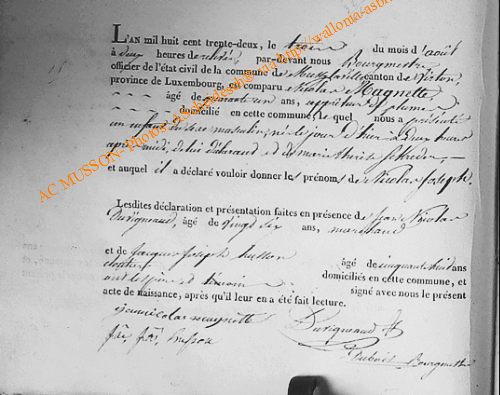 L'AN mil huit cent trente-deux, le trois du mois d'août
à deux heures de relevée, par-devant nous Bourgmestre
officier de l'état civil de la commune de canton de Virton
province de Luxembourg, est comparu Nicolas Magnette,
âgé de quarante un ans, de plume
domicilié en cette commune, lequel nous a présenté
un enfant du sexe masculin, né le jour d'hier à deux heures
après midi, de lui déclarant et de marie
et auquel il a déclaré vouloir donner les prénoms de Nicolas Joseph.
Lesdites déclaration et présentation faites en présence de Jean Nicolas
Duvigneaud, âgé de vingt six ans, marchand
et de Jacques Joseph husson âgé de cinquante huit ans
cloutier domiciliés en cette commune, et
ont les père et témoin signé avec nous le présent
acte de naissance, après qu'il leur en a été fait lecture.
jean nicolas magnette
Duvigneaud
husson
Bourgmestre
AC MUSSON- Photos - wallonia-asbl